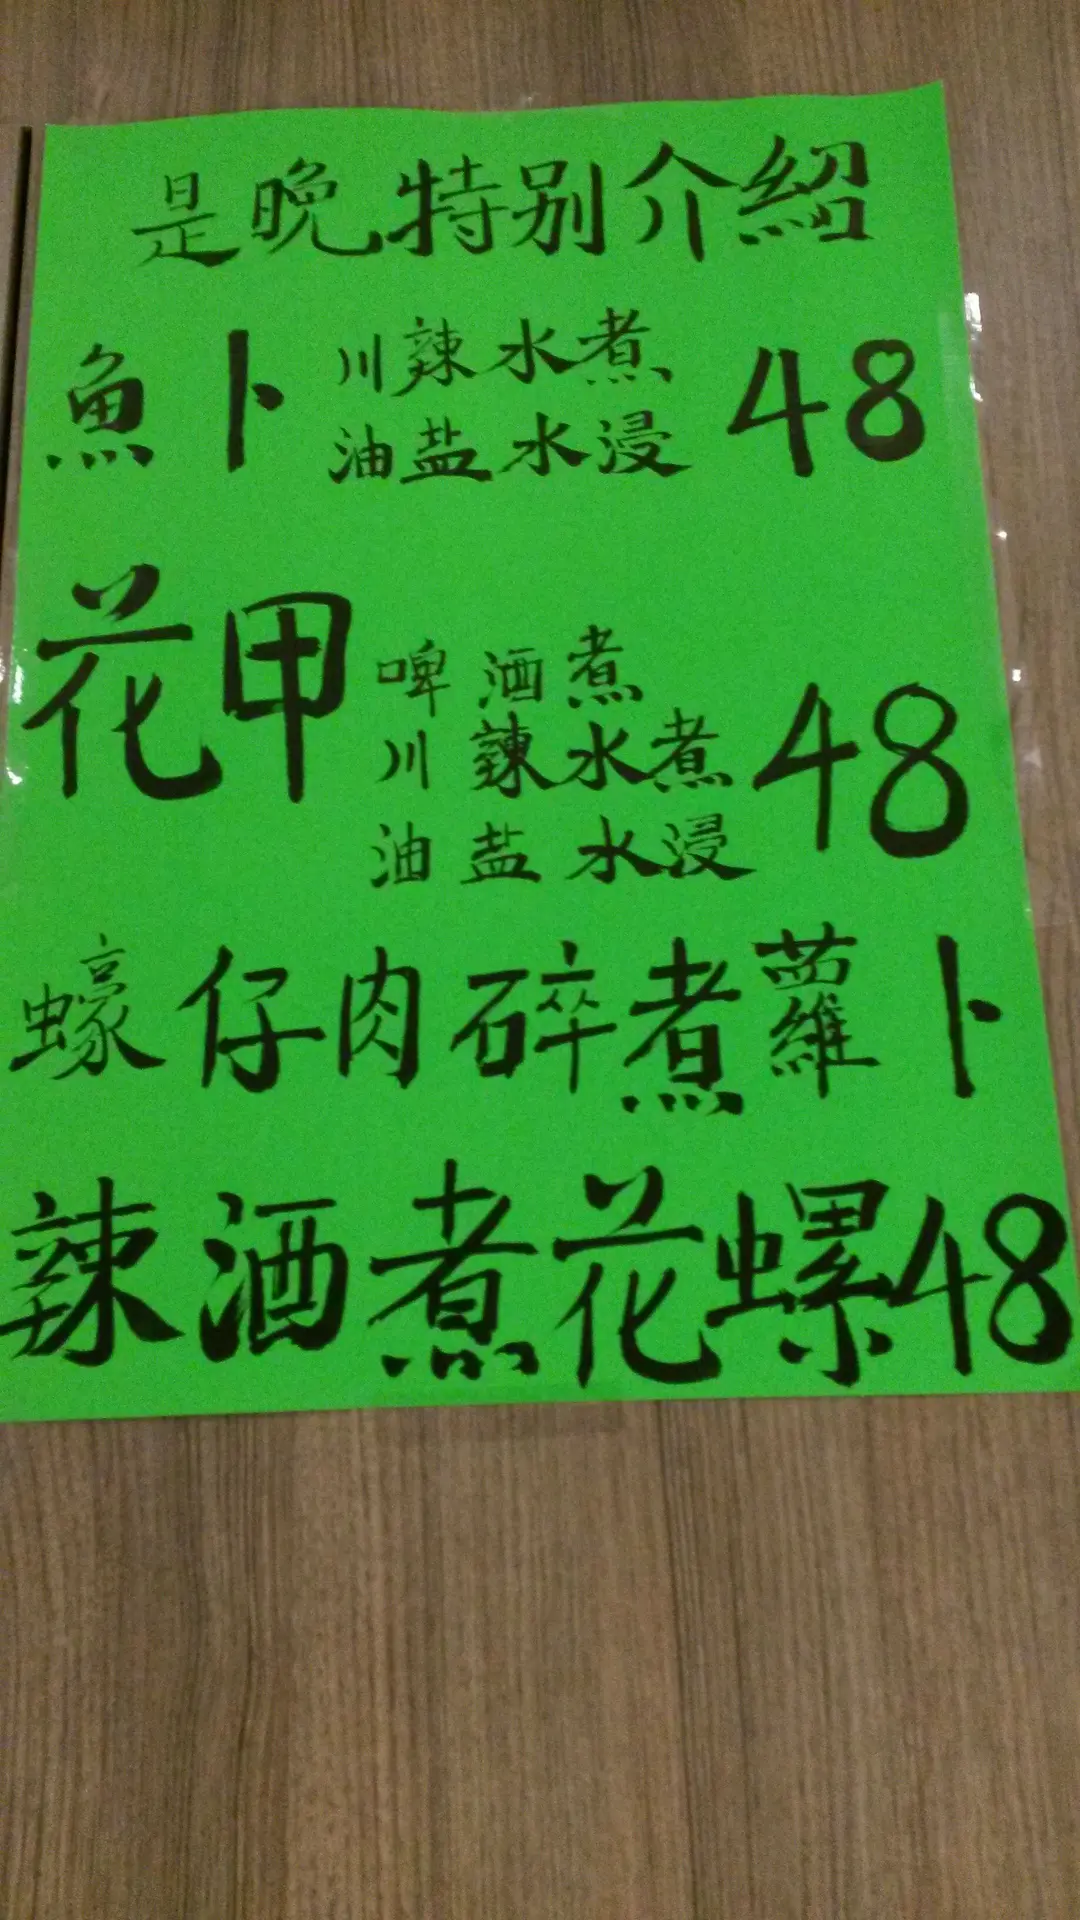 是晚特别介紹
魚卜 川辣水煮 48
油盐水浸
花甲 啤酒煮 48
川辣水煮
油盐水浸
蠔仔肉碎煮蘿卜
辣酒煮花螺48